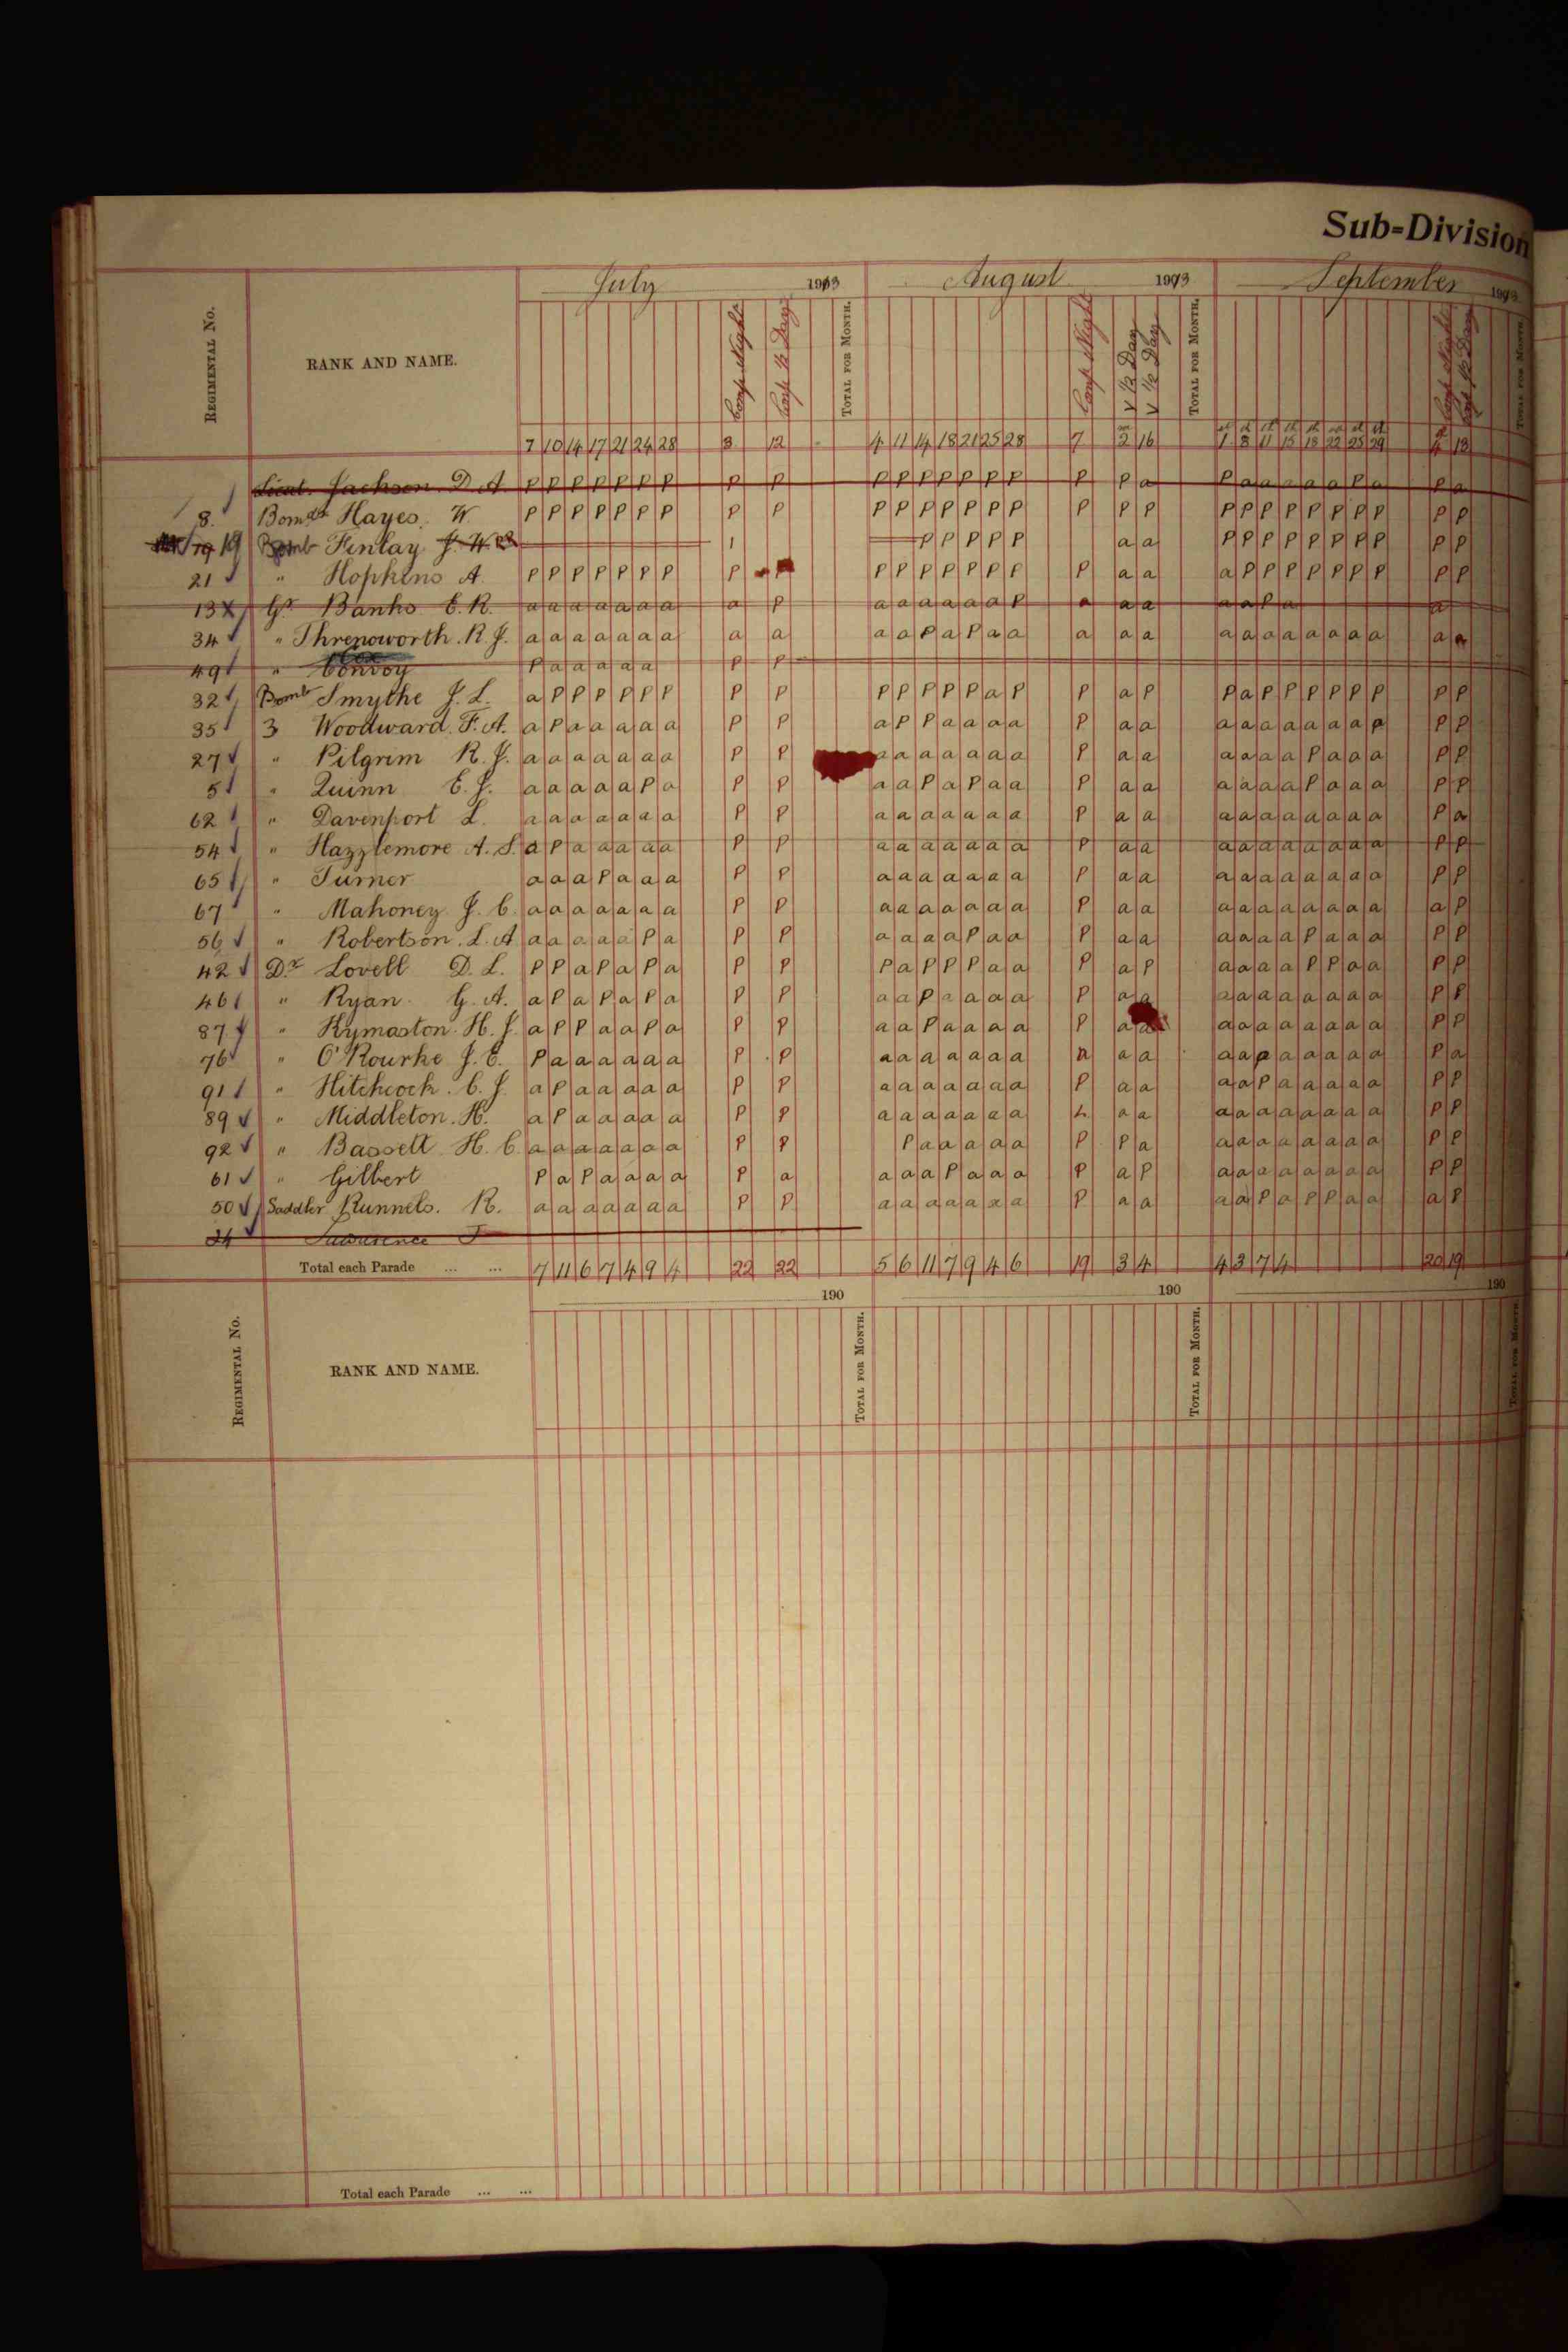 Sub-Division
July 1913 August 1913 September 1913
REGIMENTAL No. RANK AND NAME. Comp Night Comp ½ Day TOTAL FOR MONTH. Comp Night V ½ Day V ½ Day TOTAL FOR MONTH. Comp Night Comp ½ Day TOTAL FOR MONTH.
7 10 14 17 21 24 28 8 12 4 11 14 18 21 25 28 7 2nd 16 1st 8th 11th 15th 18th 22nd 25th 29th 4th 13
Lieut. Jackson. D. A P P P P P P P P P P P P P P P P P P a P a a a a a P a P a
8. Bomdr Hayes. W P P P P P P P P P P P P P P P P P P P P P P P P P P P P P
19 19 Bomb Finlay J. W. 1 P P P P P a a P P P P P P P P P P
21 " Hopkins A P P P P P P P P P P P P P P P P P a a a P P P P P P P P P
13 X Gr Banks E. R. a a a a a a a a P a a a a a a P a a a a a P a a
34 " Threnoworth. R. J. a a a a a a a a a a a P a P a a a a a a a a a a a a a a a
49 " Convoy P a a a a a P P
32 Bomb Smythe J. L. a P P P P P P P P P P P P P a P P a P P a P P P P P P P P
35 3 Woodward. F. A. a P a a a a a P P a P P a a a a P a a a a a a a a a P P P
27 " Pilgrim R. J. a a a a a a a P P a a a a a a a P a a a a a a P a a a P P
5 " Quinn E. J. a a a a a P a P P a a P a P a a P a a a a a a P a a a P P
62 " Davenport L. a a a a a a a P P a a a a a a a P a a a a a a a a a a P a
54 " Hazzlemore A. S. a P a a a a a P P a a a a a a a P a a a a a a a a a a P P
65 " Turner a a a P a a a P P a a a a a a a P a a a a a a a a a a P P
67 " Mahoney J. C. a a a a a a a P P a a a a a a a P a a a a a a a a a a a P
56 " Robertson. L. A a a a a a P a P P a a a a P a a P a a a a a a P a a a P P
42 Dr Lovell D. L. P P a P a P a P P P a P P P a a P a P a a a a P P a a P P
46 " Ryan. G. A. a P a P a P a P P a a P a a a a P a a a a a a a a a a P P
87 " Kymaston. H. J. a P P a a P a P P a a P a a a a P a a a a a a a a a a P P
76 " O'Rourke J. E. P a a a a a a P P a a a a a a a a a a a a P a a a a a P a
91 " Hitchcock. C. J. a P a a a a a P P a a a a a a a P a a a a P a a a a a P P
89 " Middleton. H. a P a a a a a P P a a a a a a a L a a a a a a a a a a P P
92 " Bassett H. C. a a a a a a a P P P a a a a a P P a a a a a a a a a P P
61 " Gilbert P a P a a a a P a a a a P a a a P a P a a a a a a a a P P
50 Saddler Runnels. R. a a a a a a a P P a a a a a a a P a a a a P a P P a a a P
24 Lawrence J
Total each Parade ... ... 7 11 6 7 4 9 4 22 22 5 6 11 7 9 4 6 19 3 4 4 3 7 4 20 19
190 190 190
REGIMENTAL No. RANK AND NAME. TOTAL FOR MONTH. TOTAL FOR MONTH. TOTAL FOR MONTH.
Total each Parade ... ...